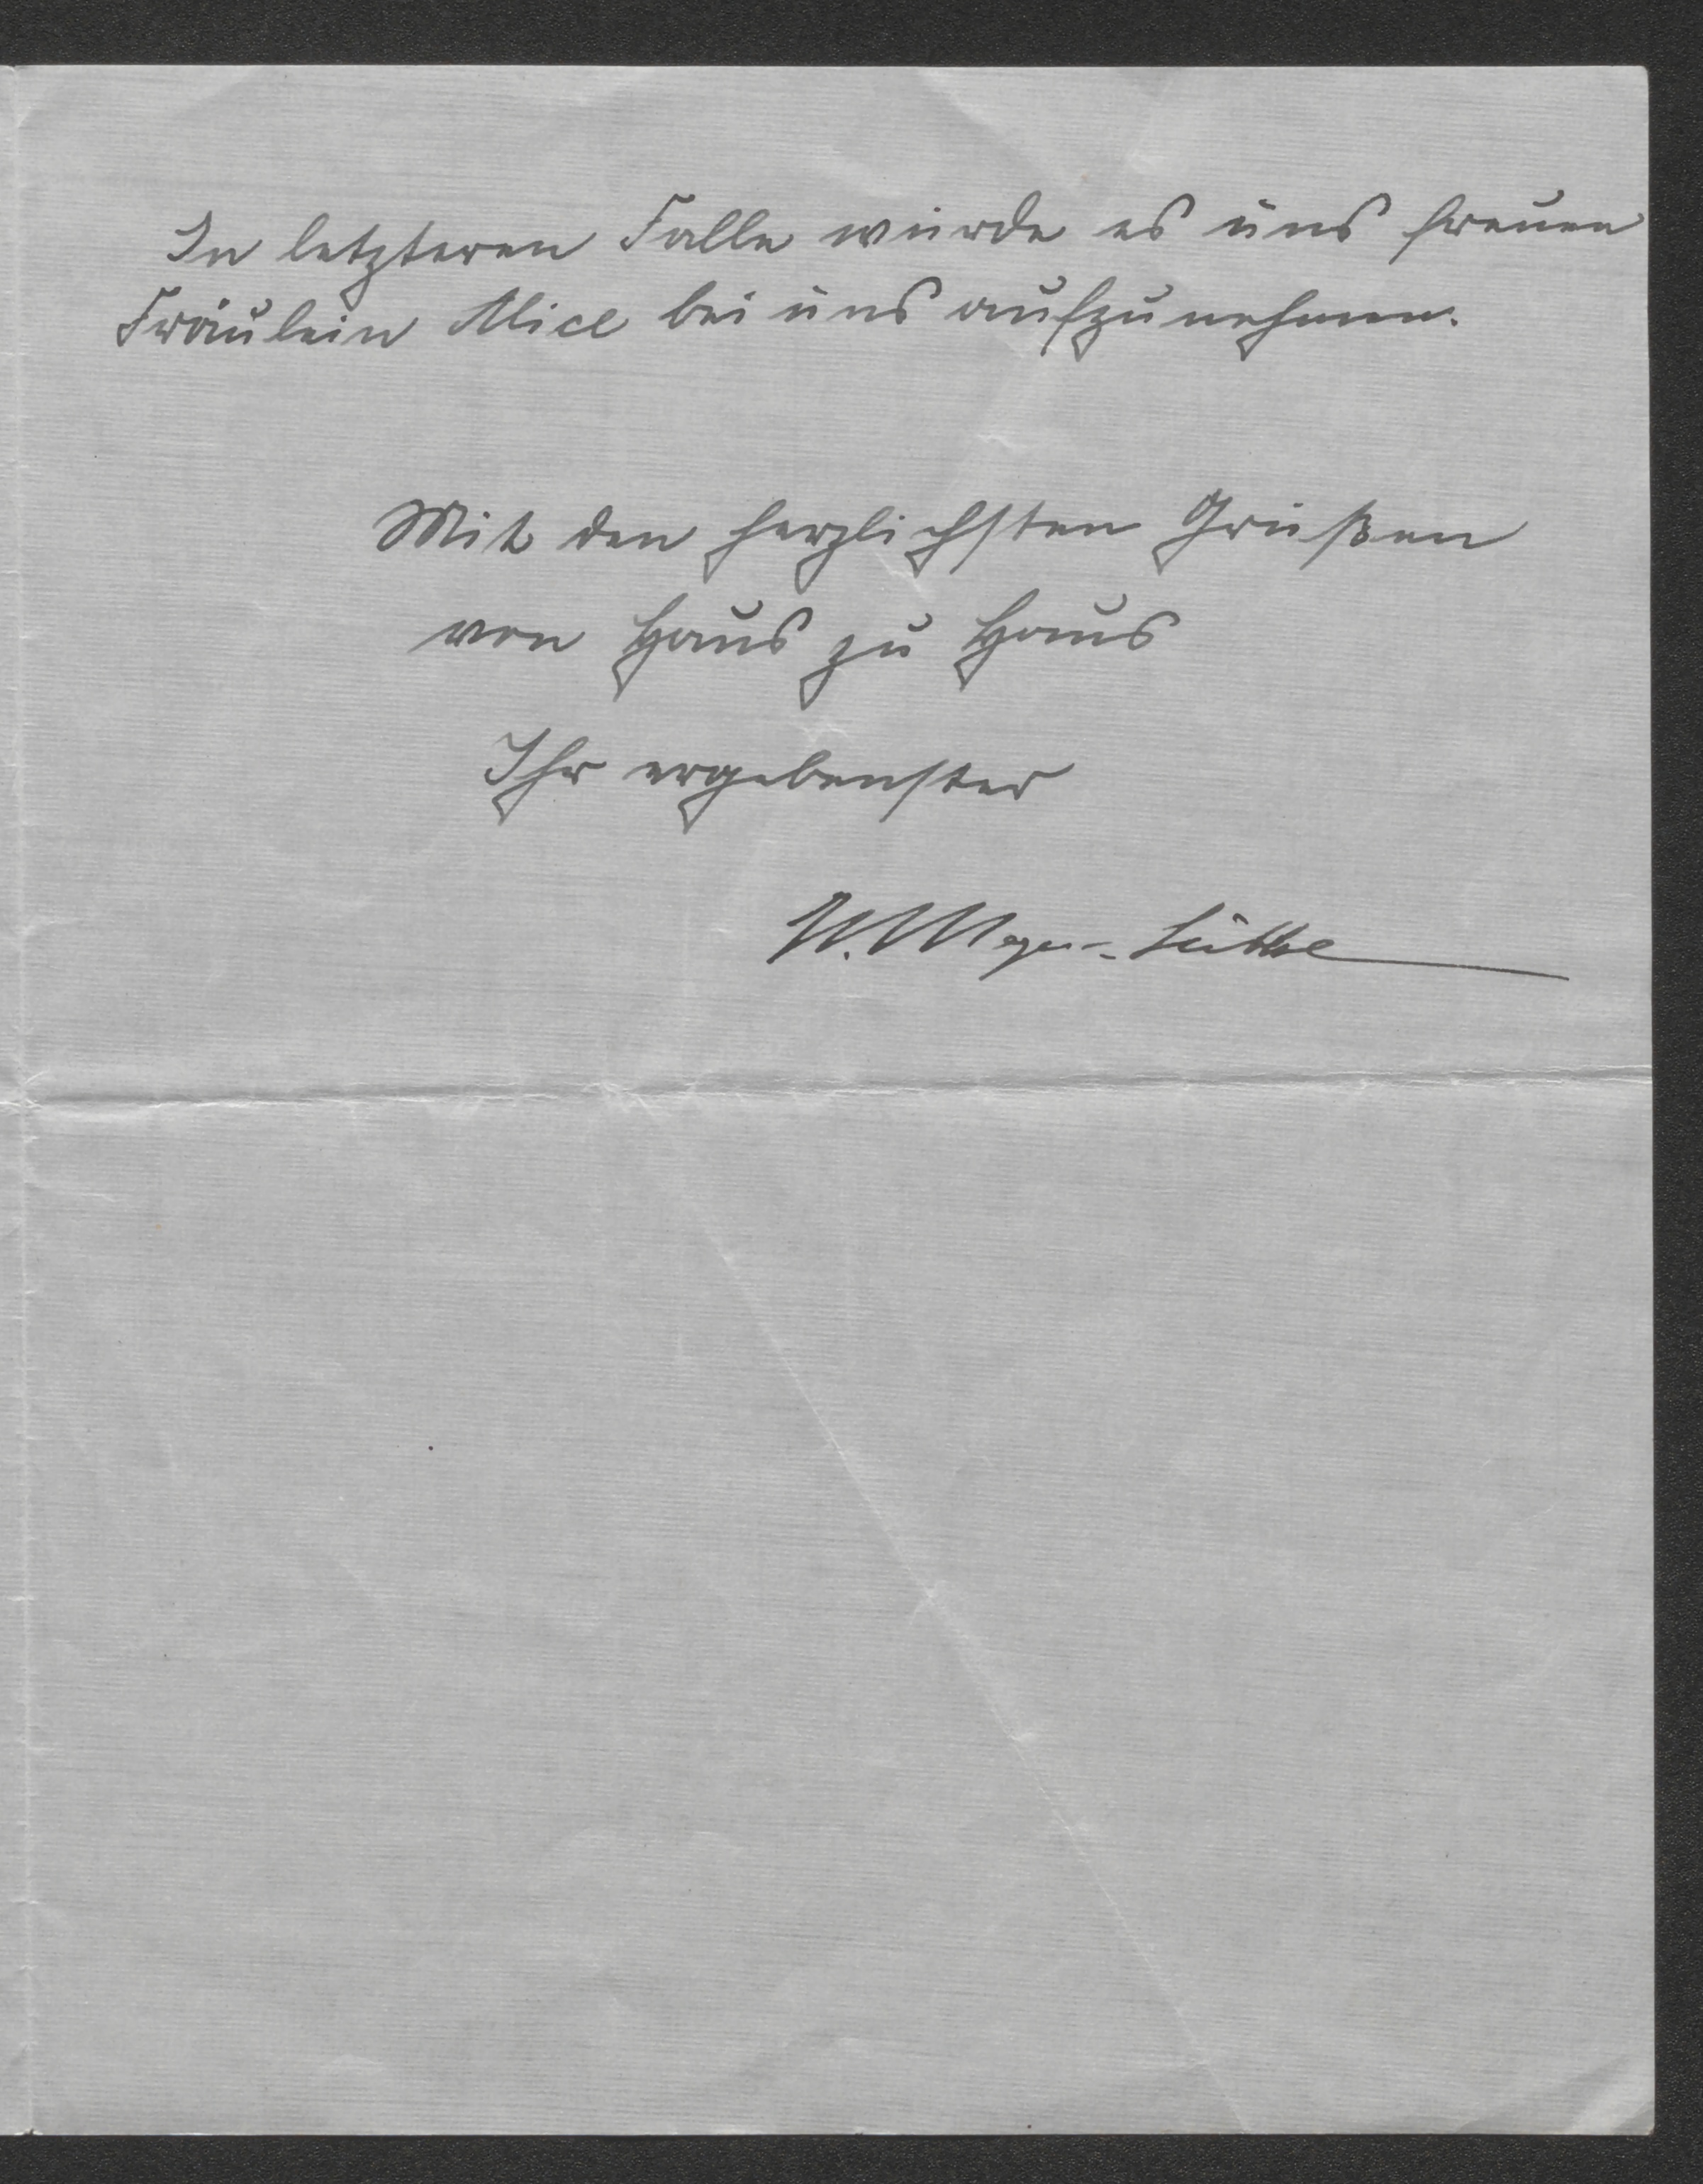 In letzteren Falle würde es uns freuen
Fräulein Alice bei uns aufzunehmen.
Mit den herzlichsten Grüßen
von Haus zu Haus
Ihr ergebenster
W. Meyer-Lübke